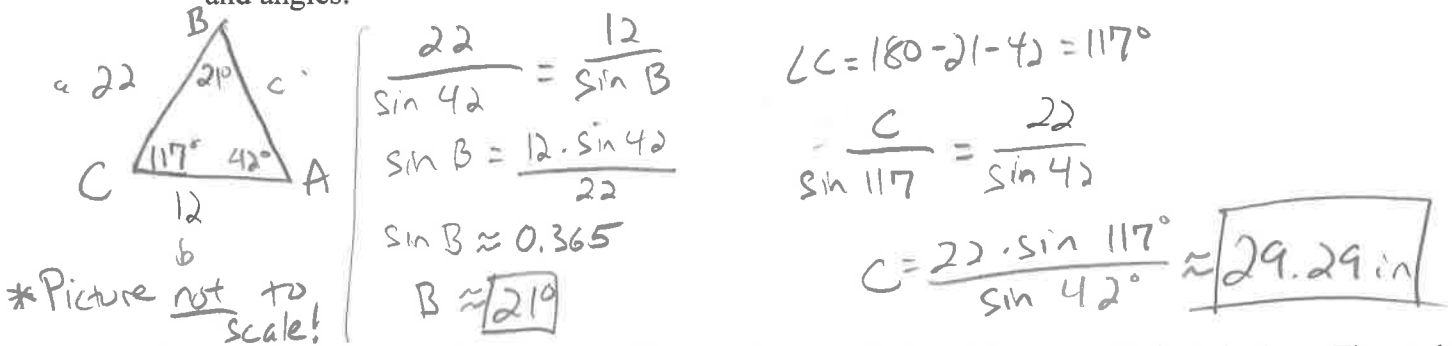 and angles.
B
a 22
21°
c
117°
42°
C
A
12
b
*Picture not to
scale!
22/sin 42 = 12/sin B
sin B = 12 · sin 42/22
sin B ≈ 0.365
B ≈ 21°
∠C = 180 - 21 - 42 = 117°
c/sin 117 = 22/sin 42
C = 22 · sin 117°/sin 42° ≈ 29.29 in